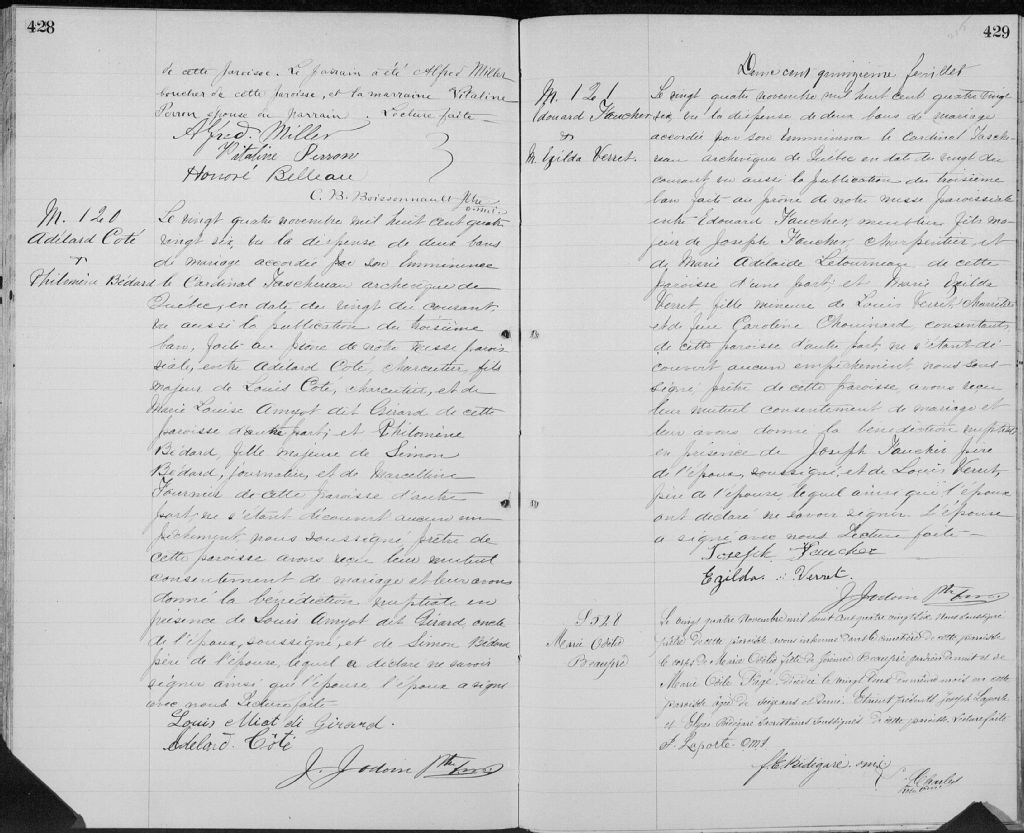 428
de cette paroisse. Le parrain a été Alfred Miller
boucher de cette paroisse, et la marraine Vitaline
Perron épouse du parrain. Lecture faite
Alfred Miller
Vitaline Perron
Honoré Belleau
C. B. Boissonnault Ptre
o.m.i.
M. 120
Adélard Coté
&
Philomène Bédard
Le vingt quatre novembre mil huit cent quatre
vingt six, vu la dispense de deux bans
de mariage accordée par son Emminence
le Cardinal Taschereau archevêque de
Québec, en date du vingt du courant,
vu aussi la publication du troisième
ban, faite au prone de notre messe parois
siale, entre Adélard Coté, charcutier, fils
majeur de Louis Coté, charcutier, et de
Marie Louise Amyot dit Girard de cette
paroisse d'autre part; et Philomène
Bédard, fille majeure de Simon
Bédard, journalier, et de Marcelline
Fournier de cette paroisse d'autre
part; ne s'étant découvert aucun em
pêchement, nous soussigné, prêtre de
cette paroisse avons reçu leur mutuel
consentement de mariage et leur avons
donné la bénédiction nuptiale en
présence de Louis Amyot dit Girard, oncle
de l'époux, soussigné, et de Simon Bédard
père de l'épouse, lequel a déclaré ne savoir
signer ainsi que l'épouse, l'époux a signé
avec nous Lecture faite
Louis Miot di Girard.
Adelard. Côté
J. Jodoin Ptre
429
Deux cent quinzième feuillet
M. 121
Edouard Faucher
&
M. Exilda Verret.
Le vingt quatre novembre mil huit cent quatre vingt
six, vu la dispense de deux bans de mariage
accordée par son Emminence le Cardinal Tasche-
reau archevêque de Québec en date du vingt du
courant, vu aussi la publication du troisième
ban faite au prone de notre messe paroissiale
entre Edouard Faucher, menuisier, fils ma-
jeur de Joseph Faucher, charpentier, et
de Marie Adelaide Letourneau de cette
paroisse d'une part; et Marie Exilda
Verret fille mineure de Louis Verret, Charretier
et de feue Caroline Chouinard, consentants,
de cette paroisse d'autre part, ne s'étant dé-
couvert aucun empêchement nous sous-
signé, prêtre de cette paroisse, avons reçu
leur mutuel consentement de mariage et
leur avons donné la bénédiction nuptiale,
en présence de Joseph Faucher père
de l'époux, soussigné, et de Louis Verret,
père de l'épouse, lequel ainsi que l'époux
ont déclaré ne savoir signer. L'épouse
a signé avec nous Lecture faite
Joseph Faucher
Exilda Verret.
J. Jodoin Ptre
S 528
Marie Odélie
Beaupré
Le vingt quatre Novembre mil huit cent quatre vingt six nous soussigné
prêtre de cette paroisse avons inhumé dans le cimetière de cette paroisse
le corps de Marie Odélie fille de Jérémie Beaupré, et de
Marie Odile Pagé, décédée le vingt deux du même mois en cette
paroisse âgée de six ans et demi. Etaient présents Joseph Laporte
et Elzéar Bédigaré soussignés de cette paroisse. Lecture faite
J. Laporte OMI